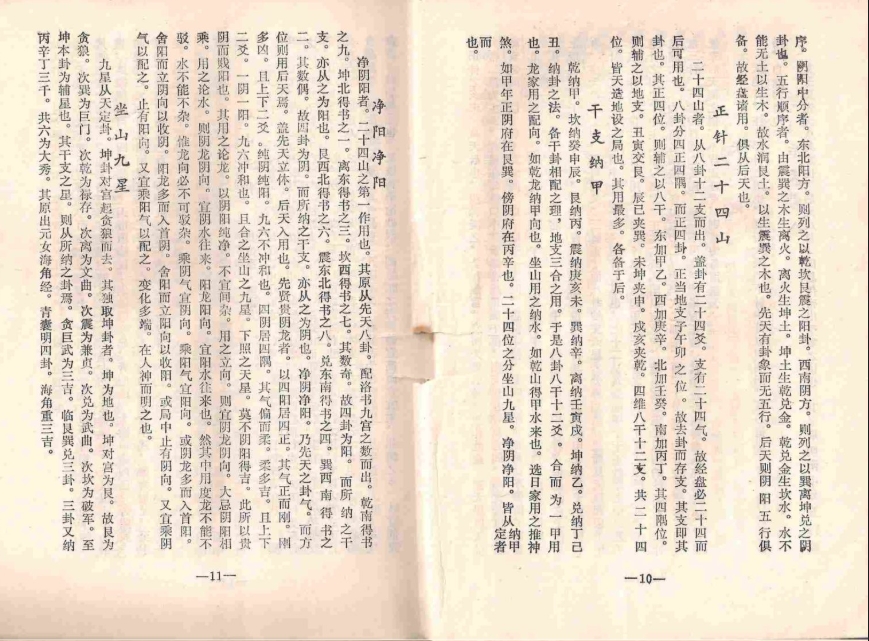 序。阴阳中分者。东北阳方。则列之以乾坎艮震之阳卦。西南阴方。则列之以巽离坤兑之阴
卦也。五行顺序者。由震巽之木生离火。离火生坤土。坤土生乾兑金。乾兑金生坎水。水不
能无土以生木。故水润艮土。以生震巽之木也。先天有卦象而无五行。后天则阴阳五行俱
备。故经盘诸用。俱从后天也。
正针二十四山
二十四山者。从八卦十二支而出。盖卦有二十四爻。支有二十四气。故经盘必二十四而
后可用也。八卦分四正四隅。而正四卦。正当地支子午卯之位。故去卦而存支。其支即其
卦也。其正四位。则辅之以八干。东加甲乙。西加庚辛。北加壬癸。南加丙丁。其四隅位。
则辅之以地支。丑寅交艮。辰巳夹巽。未坤夹申。戍亥夹乾。四维八干十二支。共二十四
位。皆天造地设之局也。其用最多。各备于后。
干支纳甲
乾纳甲。坎纳癸申辰。艮纳丙。震纳庚亥未。巽纳辛。离纳壬寅戍。坤纳乙。兑纳丁己
丑。纳卦之法。备干卦相配之理，地支三合之用。于是八卦八干十二爻。合而为一甲用
也。龙家用之配向。如乾龙纳甲向也。坐山用之纳水。如乾山得甲水来也。选日家用之推神
煞。如甲年正阴府在艮巽。傍阴府在丙辛也。二十四位之分坐山九星。净阴净阳。皆从纳甲
而定者
也。
—10—
净阳净阳
净阴阳者。二十四山之第一作用也。其原从先天八卦。配洛书九宫之数而出。乾南得书
之九。坤北得书之一。离东得书之三。坎西得书之七。其数奇。故四卦为阳。而所纳之干
支。亦从之为阳也。艮西北得书之六。震东北得书之八。兑东南得书之四。巽西南得书之
二。其数偶。故四卦为阴。而所纳之干支。亦从之为阴也。净阴净阳。乃先天之卦气。而方
位则用后天焉。盖先天立体。后天入用也。先贤贵阴龙者。以四阳居四正。其气正而刚。刚
多凶。且上下二爻。纯阴纯阳。九六不冲和也。四阴居四隅。其气偏而柔。柔多吉。且上下
二爻。一阴一阳。九六冲和也。且合之坐山之九星。下照之天星。莫不阴阳得吉。此所以贵
阴而贱阳也。其用之论龙。以阴阳纯净。不宜间杂。用之立向。则宜阴龙阴向。大忌阴阳相
乘。用之论水。则阴龙阴向。宜阴水往来。阳龙阳向。宜阳水往来也。然其中用度龙不能不
驳。水不能不杂。惟龙向必不可驳杂。乘阴气宜阴向。乘阳气宜阳向。或阴龙多而入首阳。
舍阳而立阴向以收阴。阳龙多而入首阴。舍阳而立阳向以收阳。或局中止有阴向。又宜乘阴
气以配之。止有阳向。又宜乘阳气以配之。变化多端。在人神而明之也。
坐山九星
九星从天定卦。坤卦对宫起贪狼而去。其独取坤卦者。坤为地也。坤对宫为艮。故艮为
贪狼。次巽为巨门。次乾为禄存。次离为文曲。次震为兼贞。次兑为武曲。次坎为破军。至
坤本卦为辅星也。其干支之星。则从所纳之卦焉。贪巨武为三吉。临艮巽兑三卦。三卦又纳
丙辛丁三千。共六为大秀。其原出元女海角经。青囊明四卦。海角重三吉。
—11—